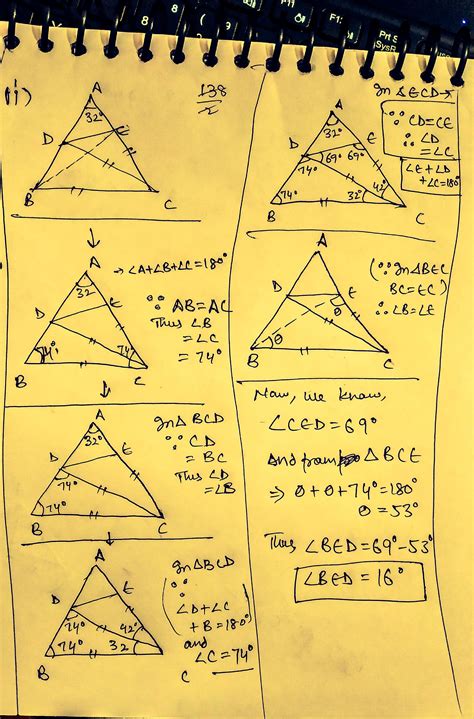 8
8
(
F11
F12
Prt S
SysR
ii)
138
2
A
32°
D
E
B
C
A
32
D
E
B
74°
74°
C
→ ∠A+∠B+∠C=180°
∵ AB=AC
Thus ∠B
= ∠C
= 74°
A
32°
D
E
74°
74°
B
C
In △ BCD
∵ CD
= BC
Thus ∠D
= ∠B
A
D
E
74°
42°
74°
32
B
C
In △BCD
∵
∠D+∠C
+B=180°
and
∠C=74°
In △ECD→
∵ CD=CE
∴ ∠D
= ∠C
∠E+∠D
+∠C=180°
A
32°
D
E
69°
69°
74°
74°
32°
42°
B
C
A
D
E
θ
θ
B
C
(∵ In △BEC
BC=EC)
∴ ∠B=∠E
Now, we know,
∠CED=69°
And from △BCE
⇒ θ+θ+74°=180°
θ=53°
Thus ∠BED=69°-53°
∠BED=16°